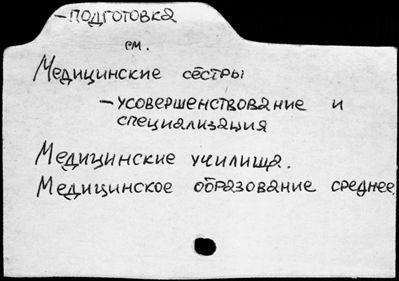 – подготовка
см.
Медицинские сёстры
– усовершенствование и
специализация
Медицинские училища.
Медицинское образование среднее